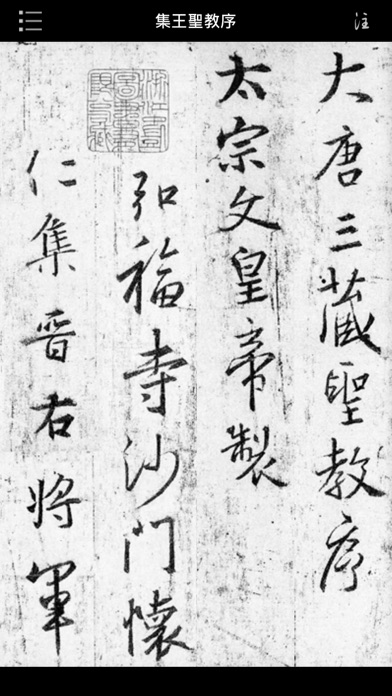 集王聖教序
注
大唐三藏聖教序
太宗文皇帝製
弘福寺沙門懷
仁集晉右將軍